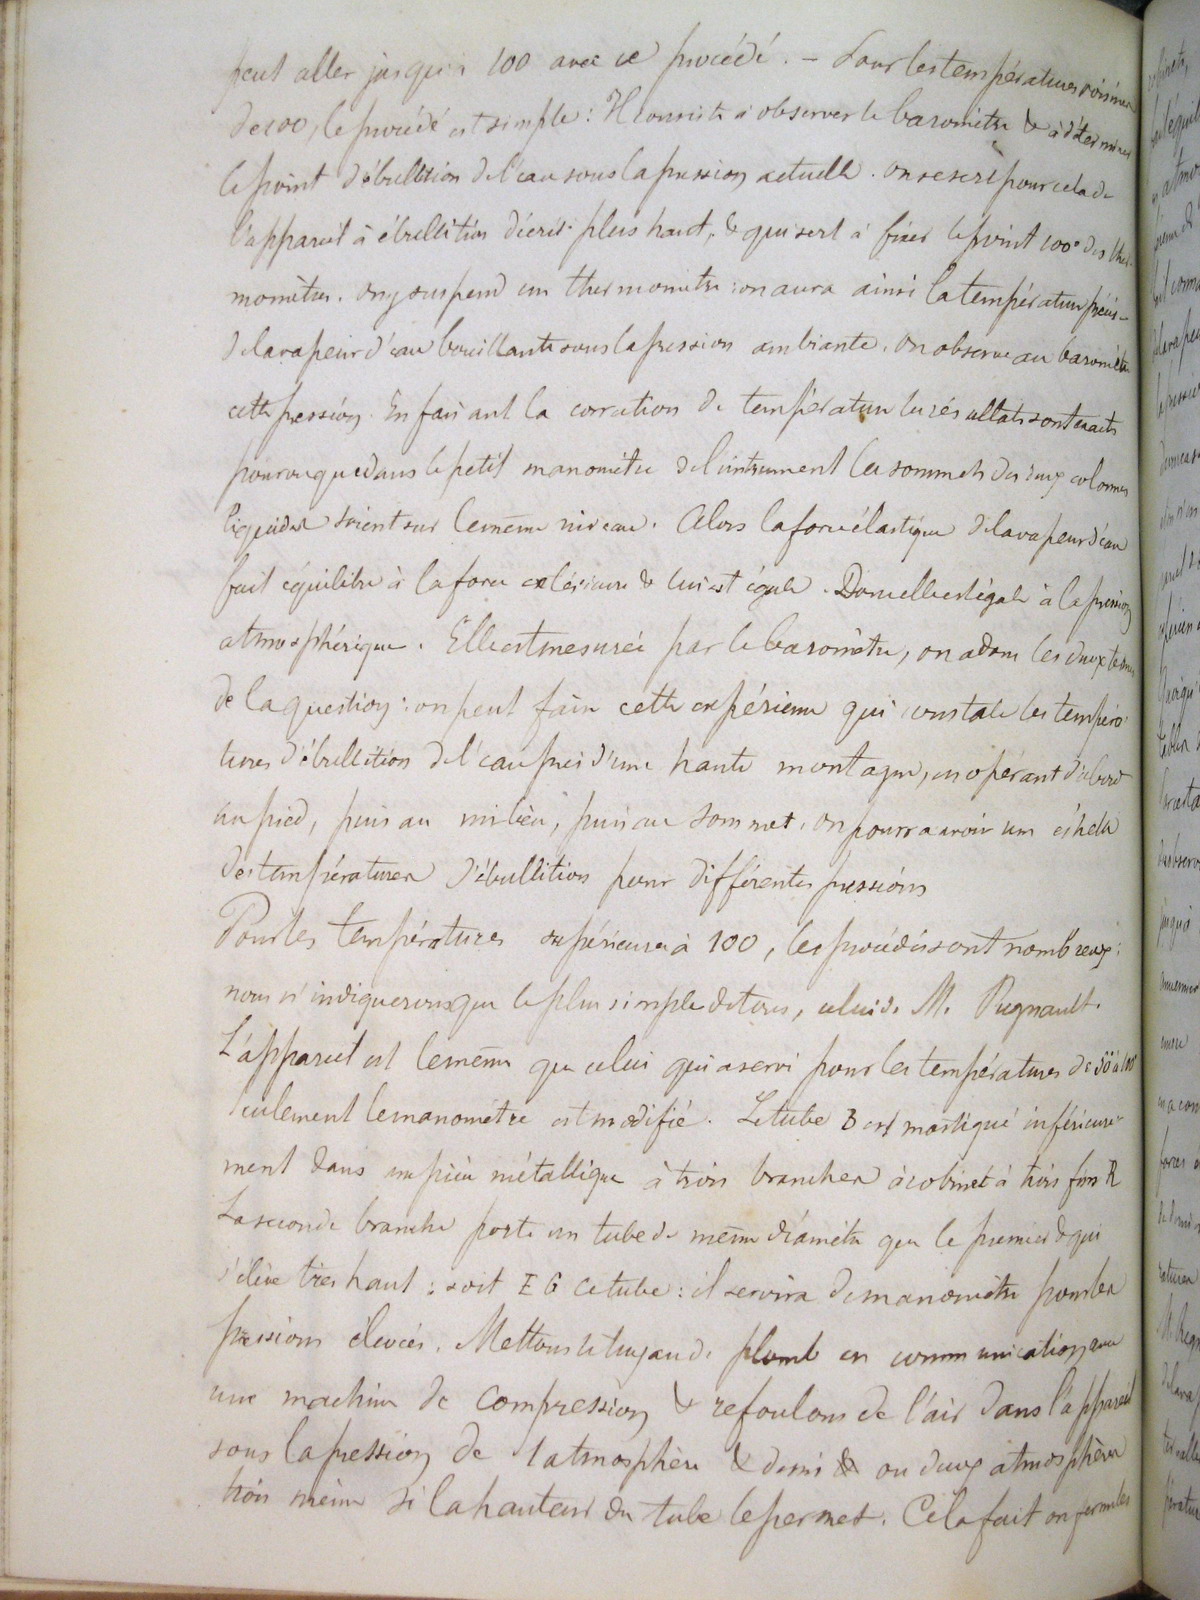 peut aller jusqu'à 100 avec ce procédé. — Pour les températures voisines
de 100, le procédé est simple : Il consiste à observer le baromètre & à déterminer
le point d'ébullition de l'eau sous la pression actuelle. on se sert pour cela de
l'appareil à ébullition décrit plus haut, & qui sert à fixer le point 100° des ther-
momètres. on y suspend un thermomètre : on aura ainsi la température précise
de la vapeur d'eau bouillante sous la pression ambiante. on observe au baromètre
cette pression. En faisant la correction de température les résultats sont exacts
pourvu que dans le petit manomètre de l'instrument les sommets des deux colonnes
liquides soient sur le même niveau. Alors la force élastique de la vapeur d'eau
fait équilibre à la force extérieure & lui est égale. Donc elle est égale à la pression
atmosphérique. Elle est mesurée par le baromètre, on a donc les deux termes
de la question : on peut faire cette expérience qui constate les tempéra-
tures d'ébullition de l'eau près d'une haute montagne, en opérant d'abord
au pied, puis au milieu, puis au sommet. on pourra avoir une échelle
des températures d'ébullition pour différentes pressions
Pour les températures supérieures à 100, les procédés sont nombreux :
nous n'indiquerons que le plus simple de tous, celui de M. Regnault.
L'appareil est le même que celui qui a servi pour les températures de 50° à 100°
seulement le manomètre est modifié. Le tube B est mastiqué inférieure-
ment dans une pièce métallique à trois branches à robinet à trois fins R
La seconde branche porte un tube de même diamètre que le premier & qui
s'élève très haut : soit EG ce tube : il servira de manomètre pour les
pressions élevées. Mettons le tuyau de plomb en communication avec
une machine de compression & refoulons de l'air dans l'appareil
sous la pression de 1 atmosphère & demi ou deux atmosphères
trois même si la hauteur du tube le permet. Cela fait on ferme les